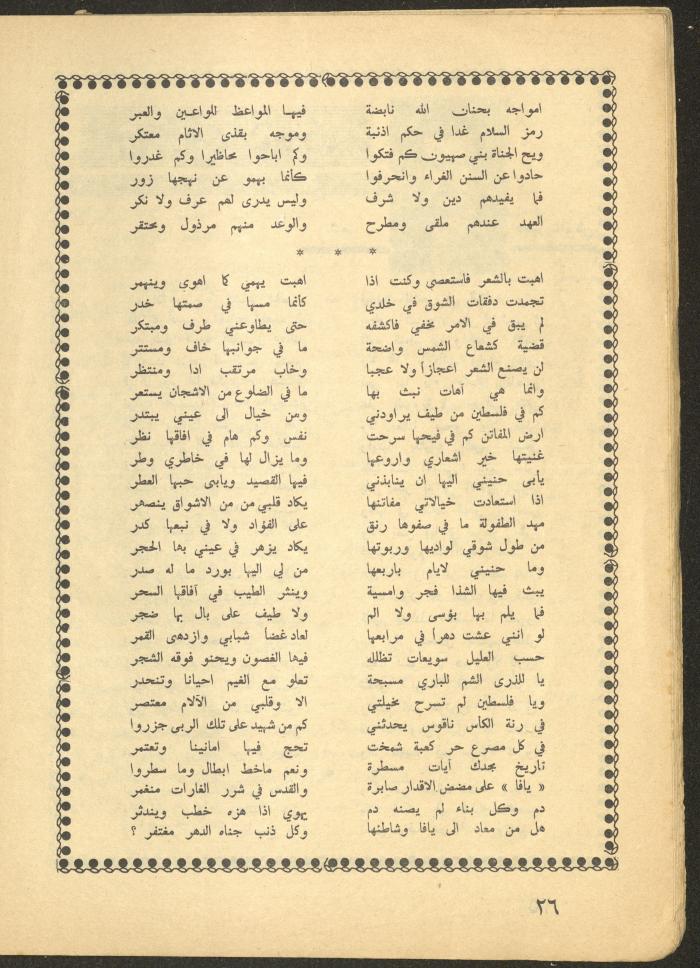 امواجه بحنان الله نابضة فيهـا المواعظ للواعـين والعبر
رمز السلام غدا في حكم اذنبة وموجه بقذى الاثام معتكر
ويح الجناة بني صهيون كم فتكوا وكم اباحوا محاظيرا وكم غدروا
حادوا عن السنن الغراء وانحرفوا كأنما بهمو عن نهجها زور
فما يفيدهم دين ولا شرف وليس يدرى لهم عرف ولا نكر
العهد عندهم ملقى ومطرح والوعد منهم مرذول ومحتقر
* * *
اهبت بالشعر فاستعصى وكنت اذا اهبت يهمي كما اهوى وينهمر
تجمدت دفقات الشوق في خلدي كأنما مسها في صمتها خدر
لم يبق في الامر مخفي فاكشفه حتى يطاوعني طرف ومبتكر
قضية كشعاع الشمس واضحة ما في جوانبها خاف ومستتر
لن يصنع الشعر اعجازاً ولا عجبا وخاب مرتقب اذا ومنتظر
وانما هي آهات نبث بها ما في الضلوع من الاشجان يستعر
كم في فلسطين من طيف يراودني ومن خيال الى عيني يبتدر
ارض المفاتن كم في فيحها سرحت نفس وكم هام في افاقها نظر
غنيتها خير اشعاري واروعها وما يزال لها في خاطري وطر
يأبى حنيني اليها ان ينابذني فيها القصيد ويابى حبها العطر
اذا استعادت خيالاتي مفاتنها يكاد قلبي من من الاشواق ينصهر
مهد الطفولة ما في صفوها رنق على الفؤاد ولا في نبعها كدر
من طول شوقي لواديها وربوتها يكاد يزهر في عيني بها الحجر
وما حنيني لايام باربعها من لي اليها بورد ما له صدر
يبث فيها الشذا فجر وامسية وينثر الطيب في آفاقها السحر
فما يلم بها بؤسى ولا الم ولا طيف على بال بها ضجر
لو انني عشت دهراً في مرابعها لعاد غضاً شبابي وازدهى القمر
حسب العليل سويعات تظلله فيها الغصون ويحنو فوقه الشجر
يا للذرى الشم للباري مسبحة تعلو مع الغيم احيانا وتنحدر
ويا فلسطين لم تسرح بخيلتي الا وقلبي من الآلام معتصر
في رنة الكأس ناقوس يحدثني كم من شهيد على تلك الربى جزروا
في كل مصرع حر كعبة شمخت تحج فيها امانينا وتعتمر
تاريخ مجدك آيات مسطرة ونعم ماخط ابطال وما سطروا
« يافا » على مضض الاقدار صابرة والقدس في شرر الغارات منغمر
دم وكل بناء لم يصنه دم يهوي اذا هزه خطب ويندثر
هل من معاد الى يافا وشاطئها وكل ذنب جناه الدهر مغتفر ؟
٢٦